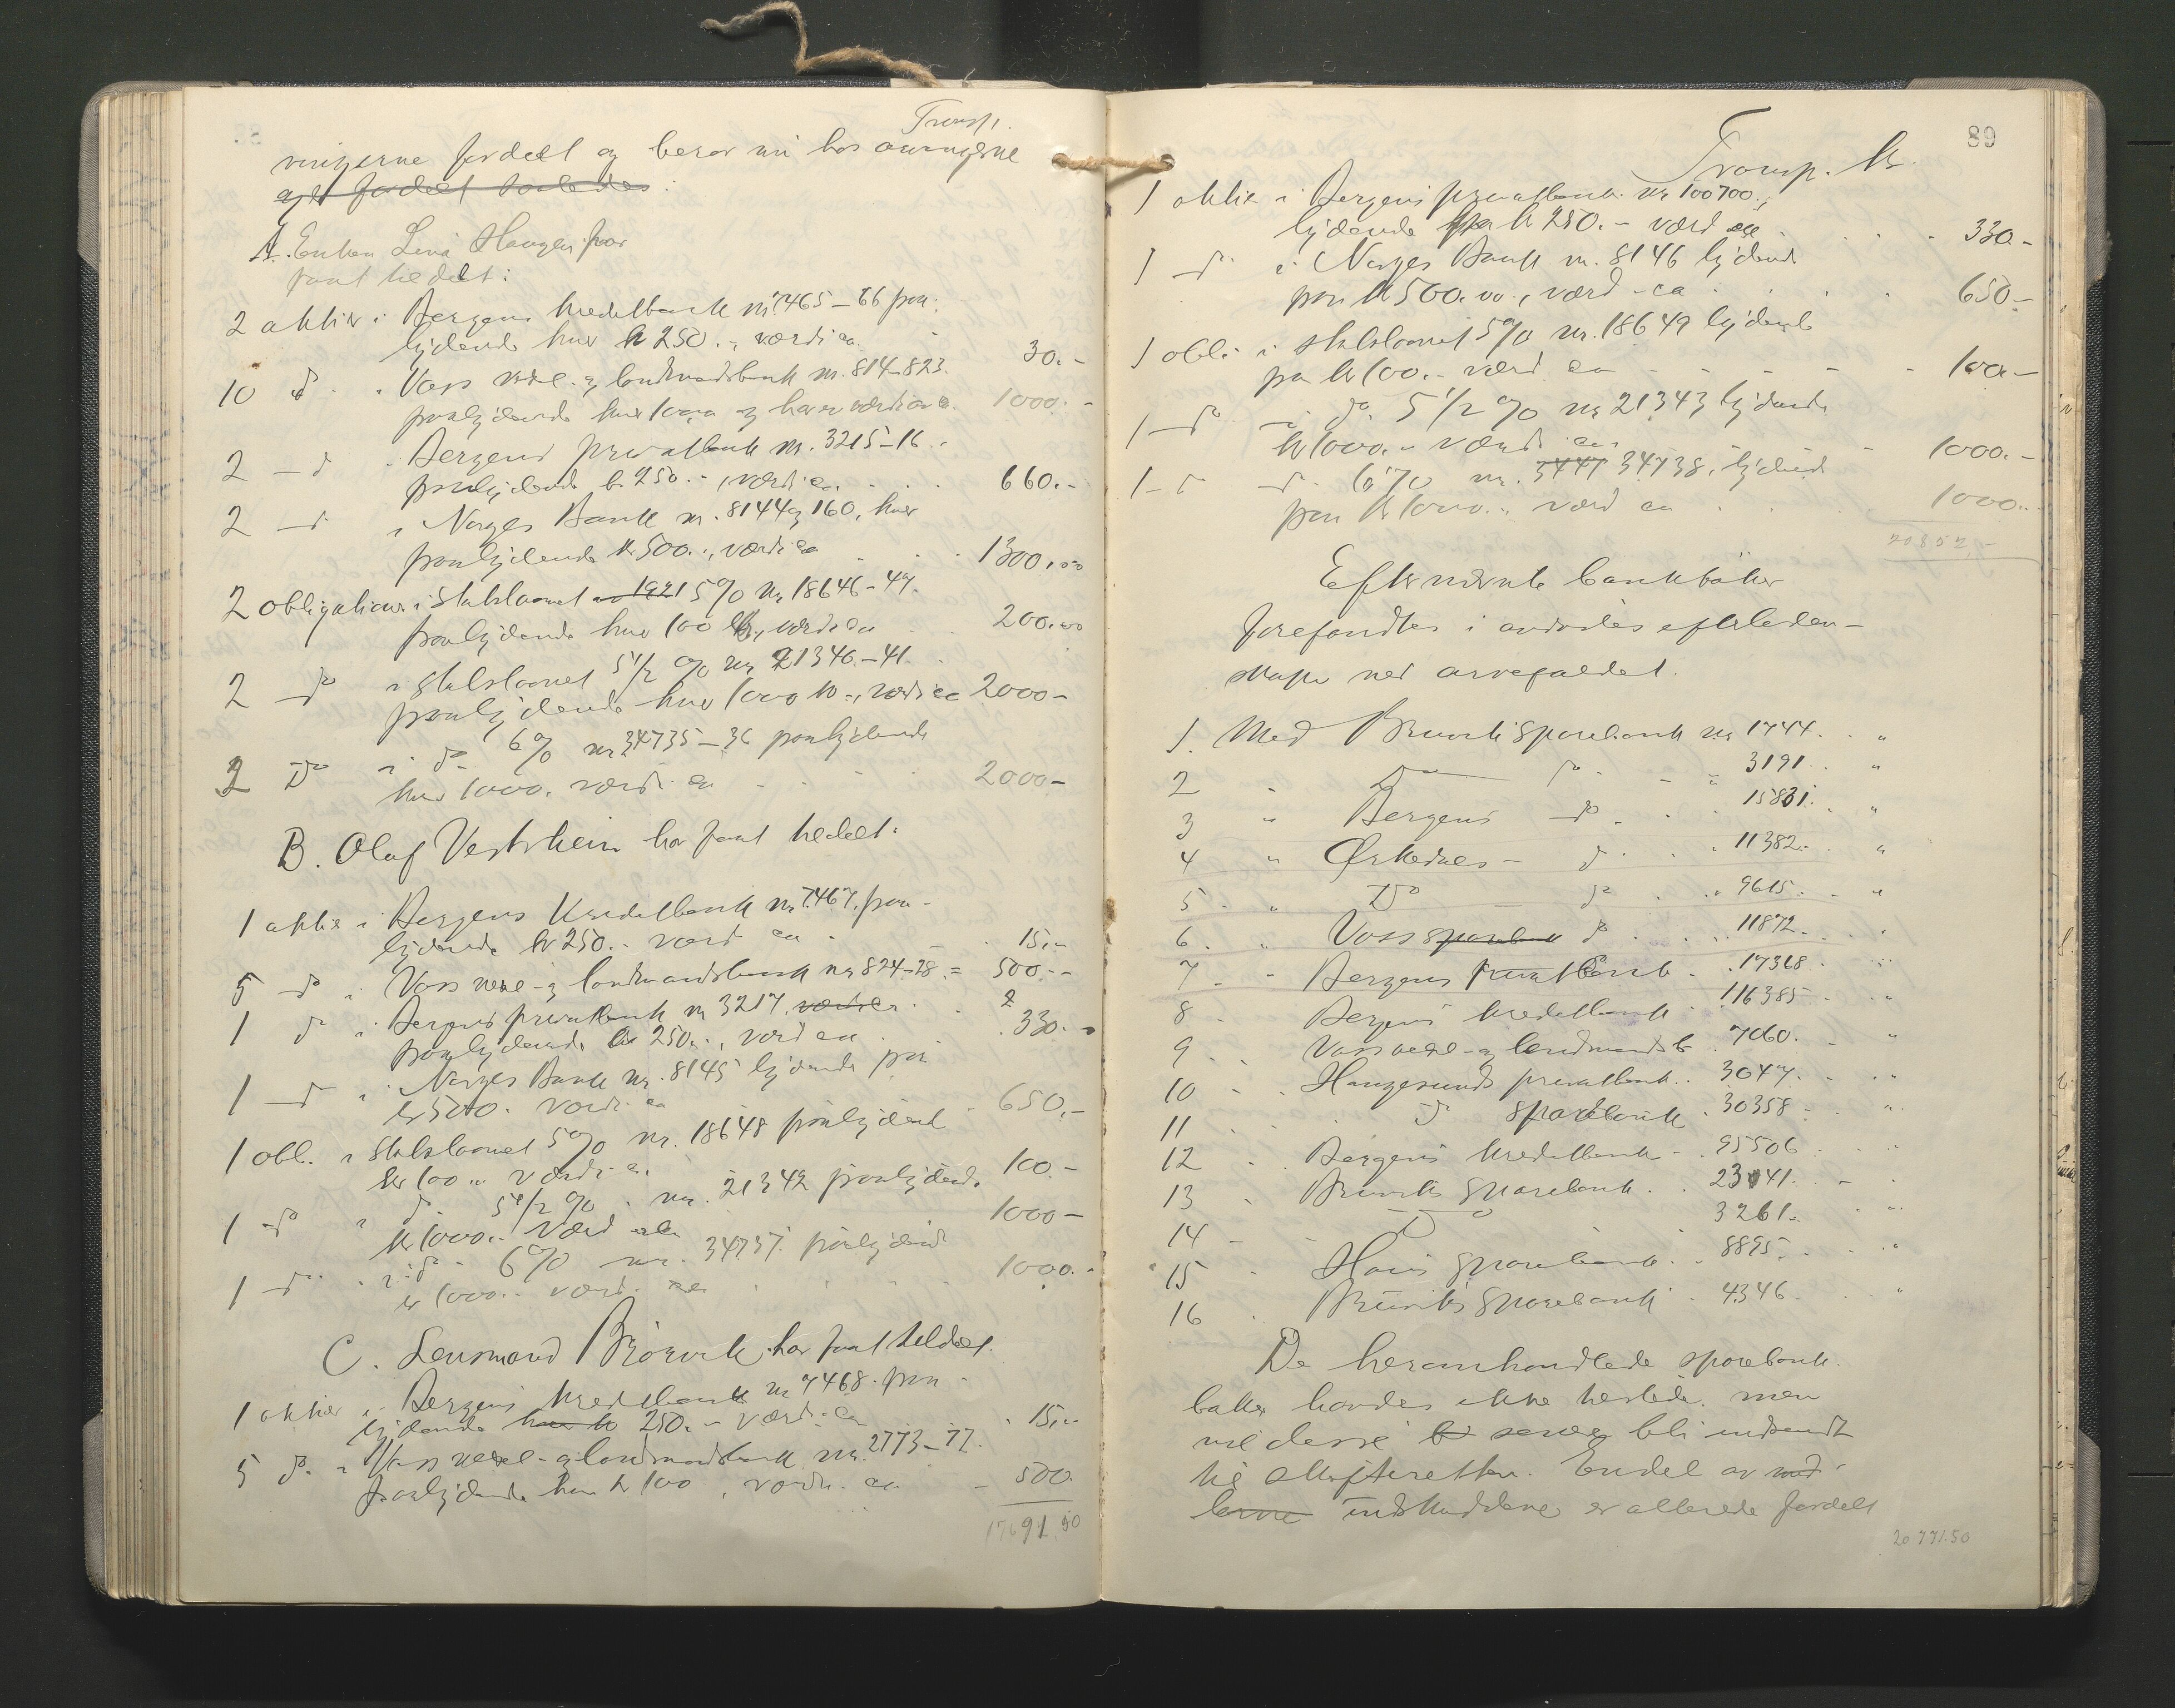 Transp.
vingerne fordelt og beror nu hos arvingerne
og er fordelt saaledes:
A. Enken Lina Haugen har
faat tildelt:
2 aktier i Bergens Kreditbank nr 7465-66 paa-
lydende hver kr 250.-, værdi ca. 30.-
10 do i Voss veksel- og landmandsbank nr. 814-823.
paalydende hver 100,00 og har en værdi av ca. 1000.-
2 - do i Bergens Privatbank nr. 3215-16.
paalydende kr. 250.-, værdi ca. 660.-
2 - do i Norges Bank nr. 8144 og 160, hver
paalydende kr 500.-, værdi ca 1300,00
2 obligationer i Statslaanet av 1921 5% nr 18646-47.
paalydende hver 100 kr., værdi ca 200.00
2 - do i Statslaanet 5 1/2 % nr 21340-41.
paalydende hver 1000 kr-, værdi ca 2000-
2 Do i do 6% nr 34735-36 paalydende
hver 1000. værdi ca 2000-
B. Olaf Vestrheim har faat tildelt:
1 aktie i Bergens Kreditbank nr 7467. paa-
lydende kr 250.- værd ca 15.-
5 - do i Voss veksel- og landmandsbank nr 824-28.= 500.-
1 do i Bergens Privatbank nr 3217, værd ca
paalydende kr 250.-, værd ca 330.-
1 - do i Norges Bank nr. 8145 lydende paa
kr 500. værdi ca 650.-
1 obl. i Statslaanet 5% nr. 18648 paalydende
kr 100.- værdi ca 100-
1 - do i do 5 1/2 % nr. 21342 paalydende
kr 1000.- værd ca 1000-
1 - do i do 6% nr. 34737. paalydende
kr 1000.- værd ca 1000.-
C. Lensmand Brørvik har faat tildelt.
1 aktie i Bergens Kreditbank nr 7468. paa-
lydende hver kr 250.- værdi ca 15.-
5 do i Voss veksel- og landmandsbank nr. 2773-77.
paalydende hver kr 100, værdi ca 500.
17691.50
89
Transp. kr.
1 aktie i Bergens privatbank nr 100700.,
lydende paa kr 250.- værd ca 330.-
1 - do i Norges Bank nr. 8146 lydende
paa kr 500.00, værd ca 650-
1 obl. i statslaanet 5% nr. 18649 lydende
paa kr 100.- værd ca 100-
1 - do i do. 5 1/2 % nr 21343 lydende
kr 1000.- værdi ca 1000.-
1 - do do 6% nr. 3447 34738, lydende
paa kr 1000.- værd ca 1000.-
20852,-
Efternevnte bankbøker
forefandtes i avdødes efterladen-
skaper ved arvefaldet.
1. Med Bruvik Sparebank nr 1744. "
2 " Do do - " 3191. "
3 " Bergens do. 15831. "
4 " Ørkedals - do " 11382.- "
5 - " Do - do " 9615. - "
6. " Voss sparebank do 11872. "
7 - " Bergens Privatbank. 17368 "
8 Bergens Kreditbank 116385 "
9 Voss veksel- og landmandsb. 7060. - "
10 - Haugesunds privatbank. 3047. "
11 do sparebank. 30358 "
12 Bergens Kreditbank - 95506
13 Bruviks Sparebank. 23141. -
14 - Do 3261. "
15 Haus sparebank. 8895. "
16 Bruviks Sparebank - 4346. "
De heromhandlede sparebank-
bøker havdes ikke tilstede. men
vil disse senere bli indsendt
til skifteretten. Endel av
indskuddene er allerede fordelt
20 771.50